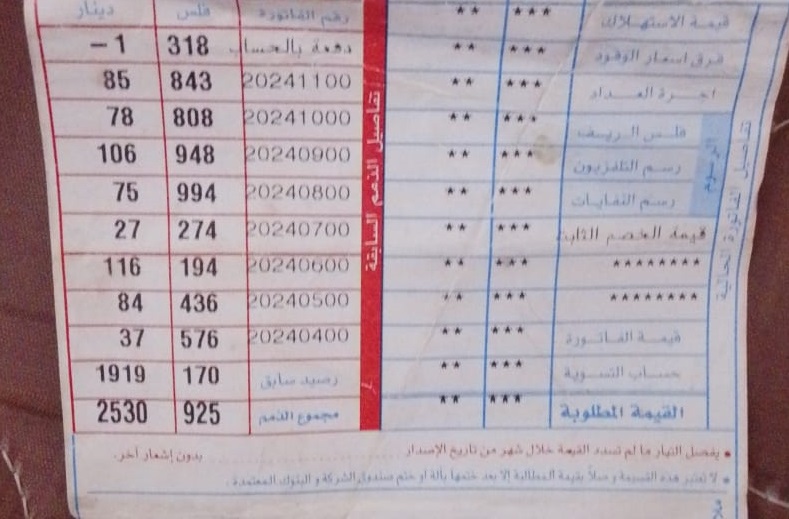 قيمة الاستهلاك *** **
فرق اسعار الوقود *** **
اجرة العداد *** **
فلس الريف *** **
رسم التلفزيون *** **
رسم النفايات *** **
قيمة الخصم الثابت *** **
******** *** **
******** *** **
قيمة الفاتورة *** **
حساب التسوية *** **
القيمة المطلوبة *** **
الرسوم
تفاصيل الفاتورة الحالية
تفاصيل الذمم السابقة
رقم الفاتورة فلس دينار
دفعة بالحساب 318 1-
20241100 843 85
20241000 808 78
20240900 948 106
20240800 994 75
20240700 274 27
20240600 194 116
20240500 436 84
20240400 576 37
رصيد سابق 170 1919
مجموع الذمم 925 2530
• يفصل التيار ما لم تسدد القيمة خلال شهر من تاريخ الإصدار بدون إشعار آخر.
• لا تعتبر هذه القسيمة وصلاً بقيمة المطالبة إلا بعد ختمها بآلة أو ختم صندوق الشركة و البنوك المعتمدة.